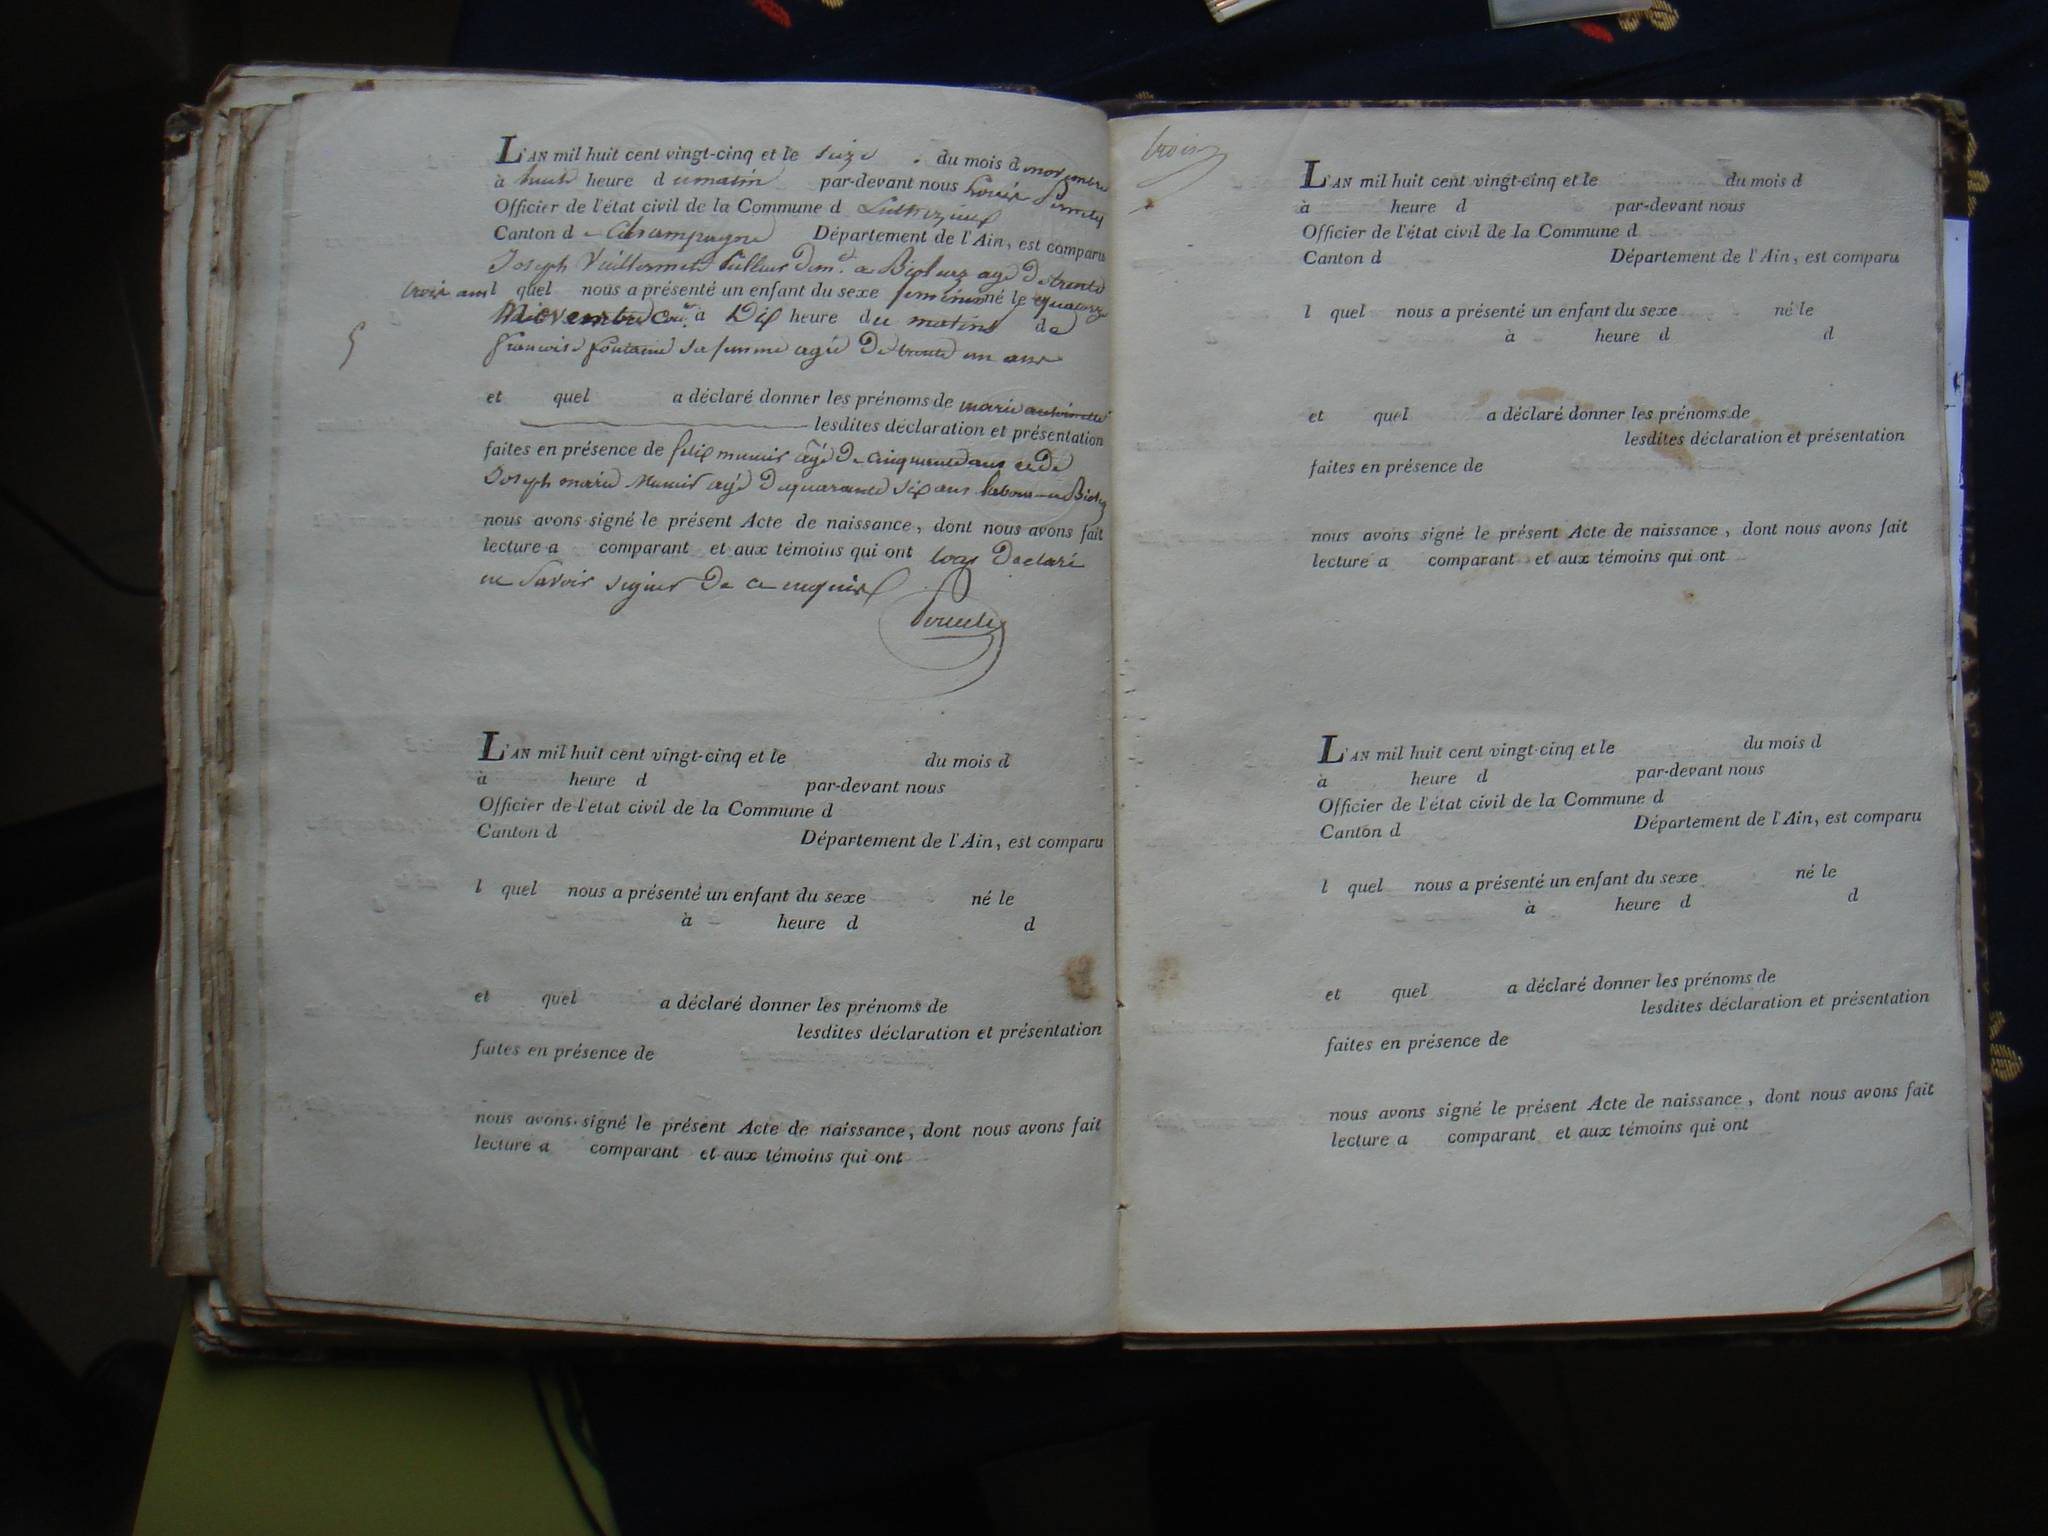 L'AN mil huit cent vingt-cinq et le seize du mois d novembre
à huit heure d umatin par-devant nous Louis Pernety
Officier de l'état civil de la Commune d Luthezieux
Canton d e Champagne Département de l'Ain, est comparu
Joseph Vuillermet tailleur dem.t a Bioleaz agé De trente
trois ans l quel nous a présenté un enfant du sexe feminin né le quatorze
Novembre cou.t à Dix heure du matin de
francoise fontaine sa femme agée De trente un ans
5
et quel a déclaré donner les prénoms de marie antoinette
lesdites déclaration et présentation
faites en présence de felix munier agé De cinquante ans et De
Joseph marie Munier agé De quarante six ans labour a
nous avons signé le présent Acte de naissance, dont nous avons fait
lecture a comparant et aux témoins qui ont tous Declaré
ne Savoir signer De ce enquis
L'AN mil huit cent vingt-cinq et le du mois d
à heure d par-devant nous
Officier de l'état civil de la Commune d
Canton d Département de l'Ain, est comparu
l quel nous a présenté un enfant du sexe né le
à heure d d
et quel a déclaré donner les prénoms de
lesdites déclaration et présentation
faites en présence de
nous avons signé le présent Acte de naissance, dont nous avons fait
lecture a comparant et aux témoins qui ont
trois
L'AN mil huit cent vingt-cinq et le du mois d
à heure d par-devant nous
Officier de l'état civil de la Commune d
Canton d Département de l'Ain, est comparu
l quel nous a présenté un enfant du sexe né le
à heure d d
et quel a déclaré donner les prénoms de
lesdites déclaration et présentation
faites en présence de
nous avons signé le présent Acte de naissance, dont nous avons fait
lecture a comparant et aux témoins qui ont
L'AN mil huit cent vingt-cinq et le du mois d
à heure d par-devant nous
Officier de l'état civil de la Commune d
Canton d Département de l'Ain, est comparu
l quel nous a présenté un enfant du sexe né le
à heure d d
et quel a déclaré donner les prénoms de
lesdites déclaration et présentation
faites en présence de
nous avons signé le présent Acte de naissance, dont nous avons fait
lecture a comparant et aux témoins qui ont